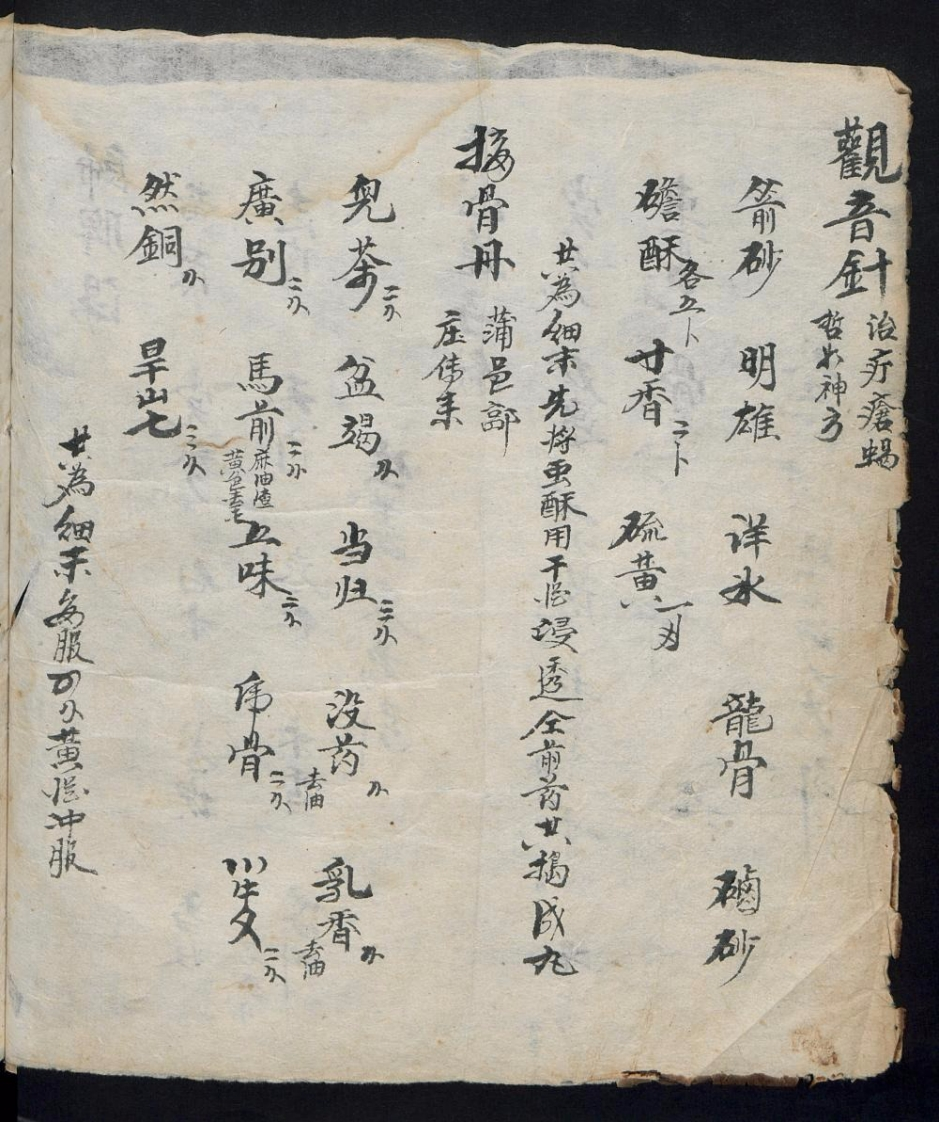 觀音針 治疔瘡蝎
哲如神方
箭砂 明雄 洋氷 龍骨 硇砂
礠酥各五卜 寸香二卜 硫黄一刄
共為細末先將虫酥用干 浸透全前药共搗成丸
接骨丹 蒲邑郭
庄伟来
兒茶二刄 盆竭刄 当归二刄 没药去油刄 乳香去油刄
廣别二刄 馬前二刄麻油渣黄色去毛 五味二刄 乕骨二刄 川牛夕二刄
然銅刄 旱山七二刄
共為細末每服 刄黄 冲服